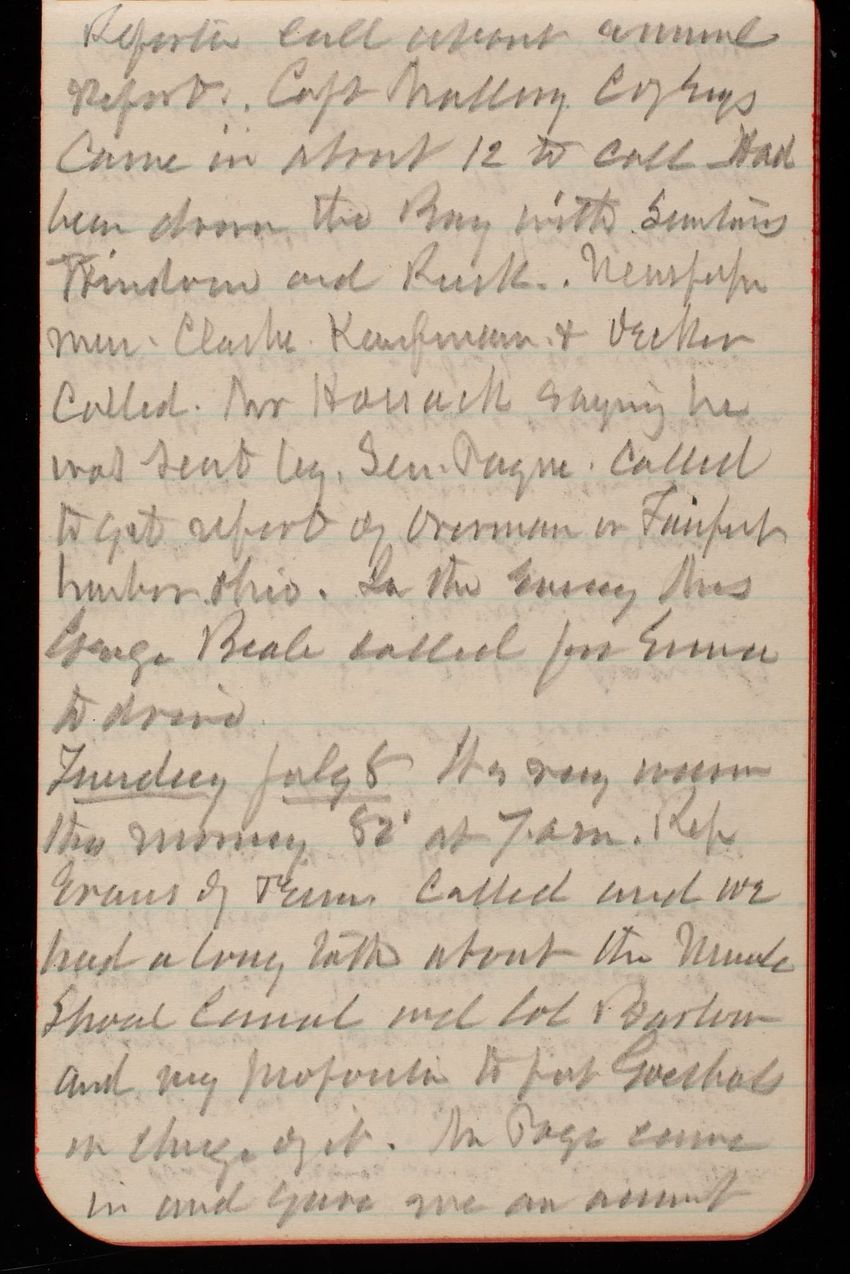 Reporter call about annual
report. Capt Mallery Cof Engs
Came in about 12 to call Had
been down the Bay with Senators
Windom and Rusk. Newspaper
men. Clarke. Kaufmann. & Decker
Called. Mr Horrack saying he
was sent by Sen. Payne. Called
to get report of Overman on Fairport
harbor Ohio. In the Evening Mrs
George Beale called for Emma
to drive
Tuesday July 8 It is very warm
this morning 82° at 7. a.m. Rep
Evans of Tenn. Called and we
had a long talk about the Muscle
Shoal Canal and Col Barlow
and my proposition to put Goethals
in charge of it. Mr Page came
in and gave me an amount